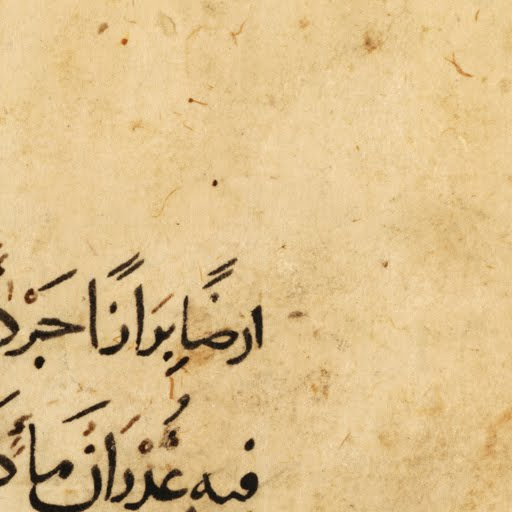 ارضًا بَرَازًا جَرْد
فيه عُدْرَانَ مَاءً